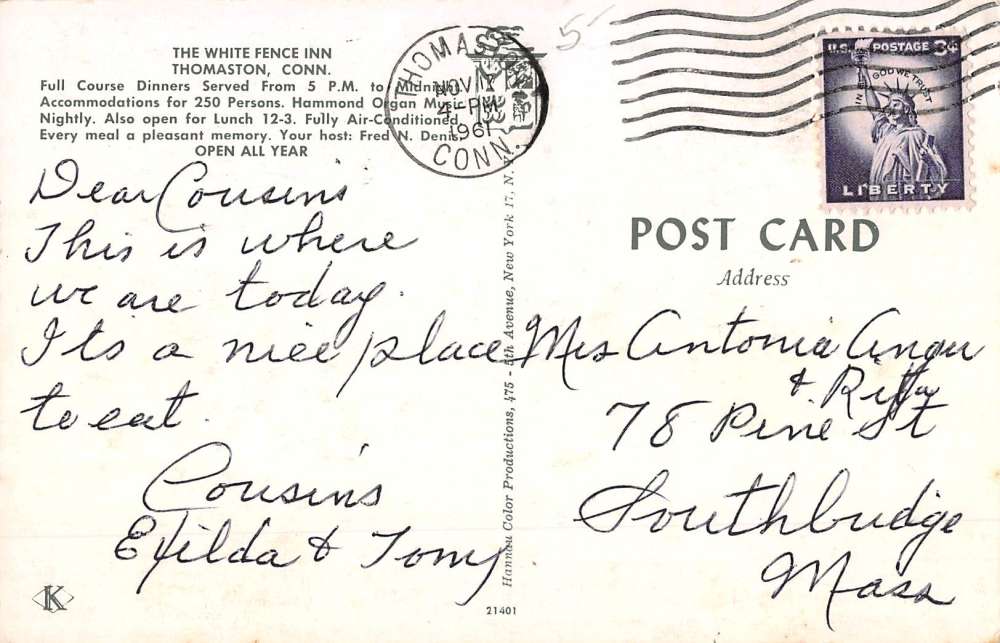 THE WHITE FENCE INN
THOMASTON, CONN.
Full Course Dinners Served From 5 P.M. to Midnight
Accommodations for 250 Persons. Hammond Organ Music
Nightly. Also open for Lunch 12-3. Fully Air-Conditioned.
Every meal a pleasant memory. Your host: Fred N. Denis.
OPEN ALL YEAR
Dear Cousins
This is where
we are today.
Its a nice place
to eat.
Cousins
& Tony
K
THOMASTON
NOV
4-PM
1961
CONN.
Hannau Color Productions, 475 - 5th Avenue, New York 17, N.Y.
21401
5
U.S. POSTAGE 3¢
IN GOD WE TRUST
LIBERTY
POST CARD
Address
Mrs Antonia
& Rita
78 Pine St
Southbridge
Mass